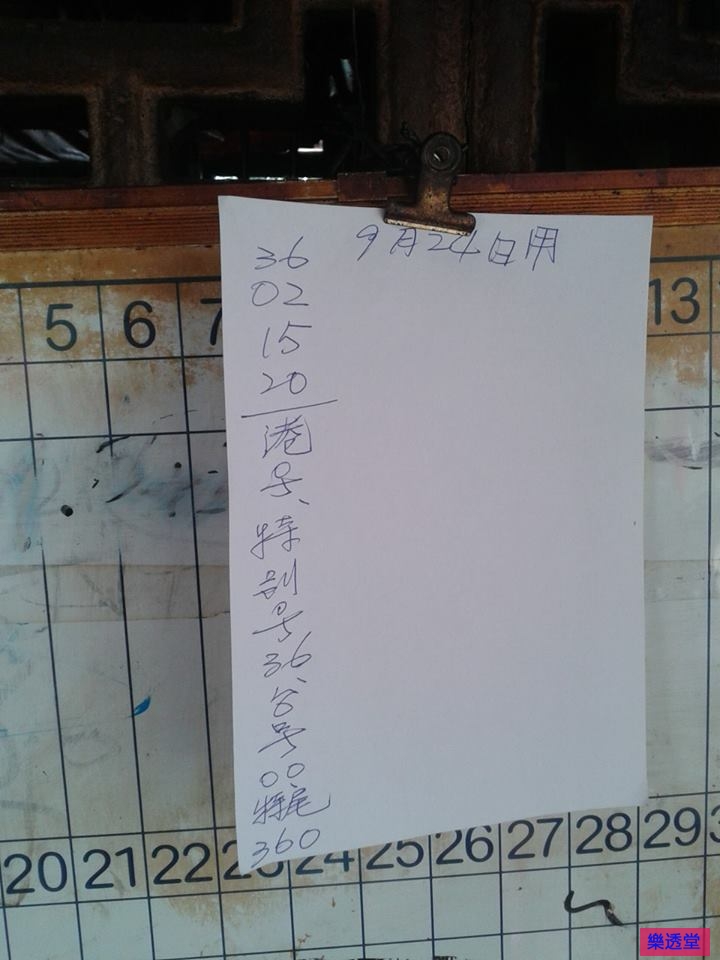 9月24日用
36
02
15
20
港
号、
特
别
号
36、
台
号
00
特尾
360
5 6 7 13
20 21 22 23 24 25 26 27 28 29
樂透堂